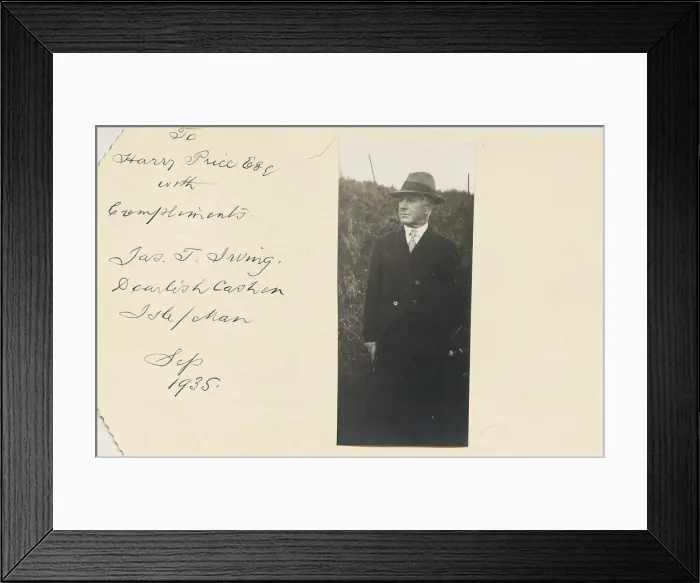 To
Harry Price Esq
with
Compliments.
Jas. T. Irving.
Doarlish Cashen
Isle/Man
Sep
1935.